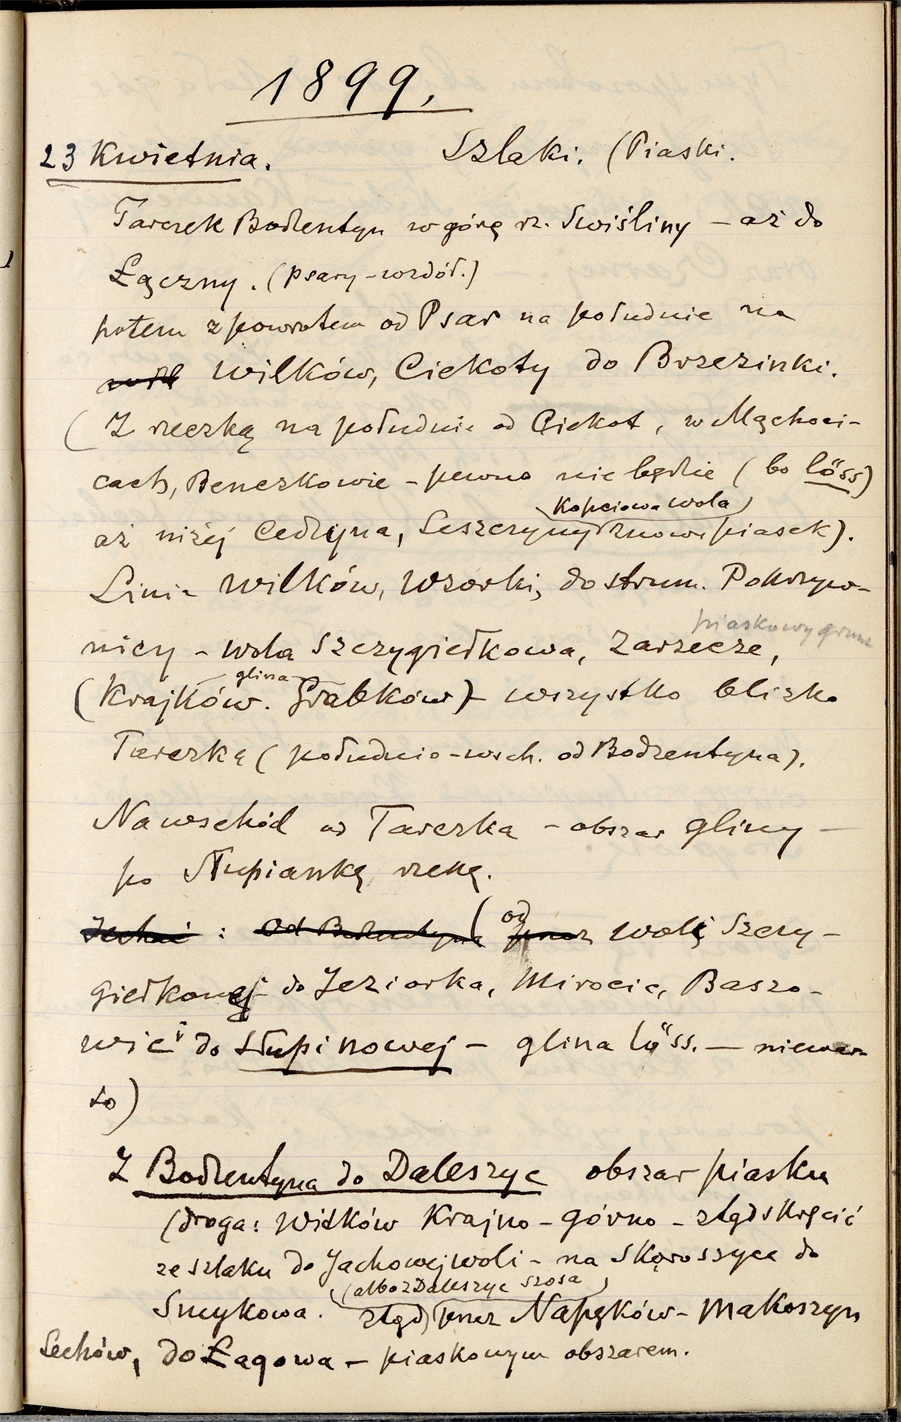 1899.
23 Kwietnia. Szlaki. (Piaski.
Tarczek Bodzentyn w górę rz. Swiśliny – aż do
Łączny. (Psary – wzdół.)
potem z powrotem od Psar na południe na
Wilków, Ciekoty do Brzezinki.
(Z rzeczką na południe od Ciekot, w Mąchoci-
cach, Beneczkowie – pewno nie będzie (bo löss)
Kopciowa wola
aż niżej Cedzyna, Leszczyny znowu piasek).
Linia Wilków, Wzorki, do strum. Pokrzyw-
piaskowy grunt
nicy – wola Szczygiełkowa, Zarzecze,
glina
(Krajków. Grabków) – wszystko blizko
Tarczka (południo-wsch. od Bodzentyna).
Na wschód od Tarczka – obszar gliny –
po Słupianką rzekę.
: (od woli Szczy-
giełkowej do Jeziorka, Mirocic, Baszo-
wic do Słupi nowej – glina löss. – niewar-
to)
Z Bodzentyna do Daleszyc obszar piasku
(droga: Wilków Krajno – Górno – ztąd skręcić
ze szlaku do Jachowej woli – na Skorzeszyce do
(albo z Daleszyc szosą)
Smykowa. ztąd przez Napęków – Makoszyn
Lechów, do Łagowa – piaskowym obszarem.